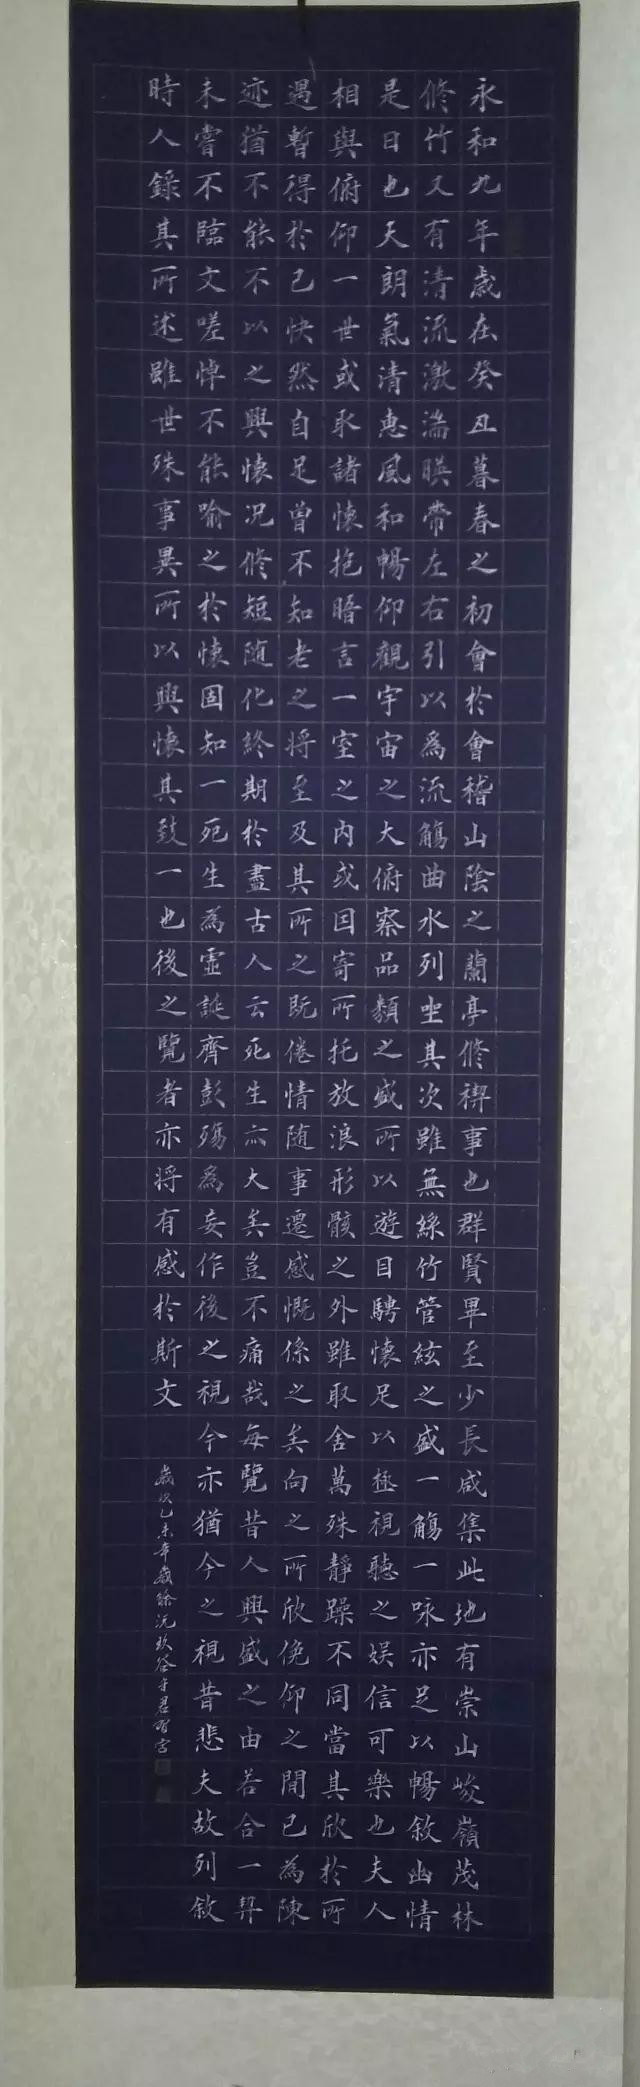 永和九年歲在癸丑暮春之初會於會稽山陰之蘭亭修禊事也群賢畢至少長咸集此地有崇山峻嶺茂林
修竹又有清流激湍暎帶左右引以為流觴曲水列坐其次雖無絲竹管絃之盛一觴一咏亦足以暢敘幽情
是日也天朗氣清惠風和暢仰觀宇宙之大俯察品類之盛所以遊目騁懷足以極視聽之娱信可樂也夫人
相與俯仰一世或取諸懷抱晤言一室之内或因寄所托放浪形骸之外雖取舍萬殊靜躁不同當其欣於所
遇暫得於己快然自足曾不知老之将至及其所之既倦情随事遷感慨係之矣向之所欣俛仰之間已為陳
迹猶不能不以之興懷况修短随化終期於盡古人云死生亦大矣豈不痛哉每覽昔人興感之由若合一契
未嘗不臨文嗟悼不能喻之於懷固知一死生為虛誕齊彭殤為妄作後之視今亦猶今之視昔悲夫故列敘
時人錄其所述雖世殊事異所以興懷其致一也後之覽者亦将有感於斯文
歲次乙未年